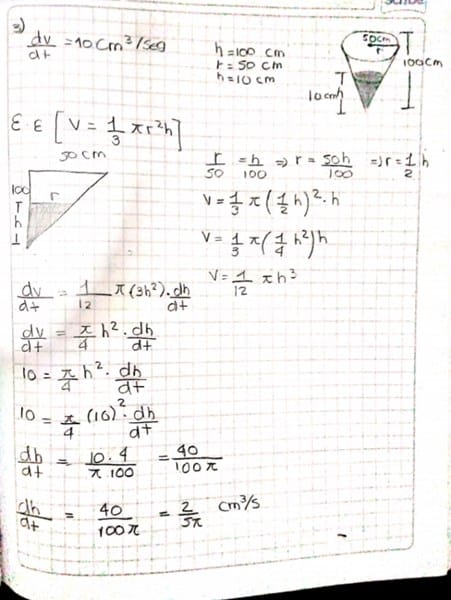 3) dv/dt = 10 cm³/seg
h = 100 cm
r = 50 cm
h = 10 cm
50cm
r
100cm
10cm
h
ε.ε [V = 1/3 πr²h]
50 cm
100
r
h
r/50 = h/100 => r = 50h/100 => r = 1/2 h
V = 1/3 π (1/2 h)² · h
V = 1/3 π (1/4 h²) h
V = 1/12 πh³
dv/dt = 1/12 π(3h²) · dh/dt
dv/dt = π/4 h² · dh/dt
10 = π/4 h² · dh/dt
10 = π/4 (10)² · dh/dt
dh/dt = 10·4/π 100 = 40/100π
dh/dt = 40/100π = 2/5π cm³/s